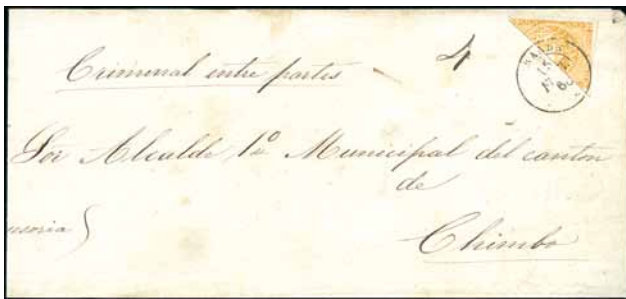 Criminal entre partes
4
Sor Alcalde 1º Municipal del canton
de
Chimbo